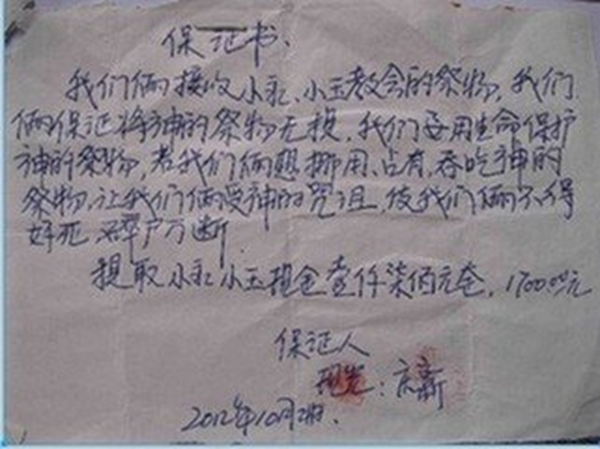 保证书、
我们俩接收小永、小玉教会的祭物,我们
俩保证将神的祭物无损,我们要用生命保护
神的祭物,若我们俩想挪用、占有、吞吃神的
祭物,让我们俩受神的咒诅,使我们俩不得
好死 碎尸万断.
提取小永小玉现金壹仟柒佰元全,1700.00元
保证人
:庆新
2012年10月2日.